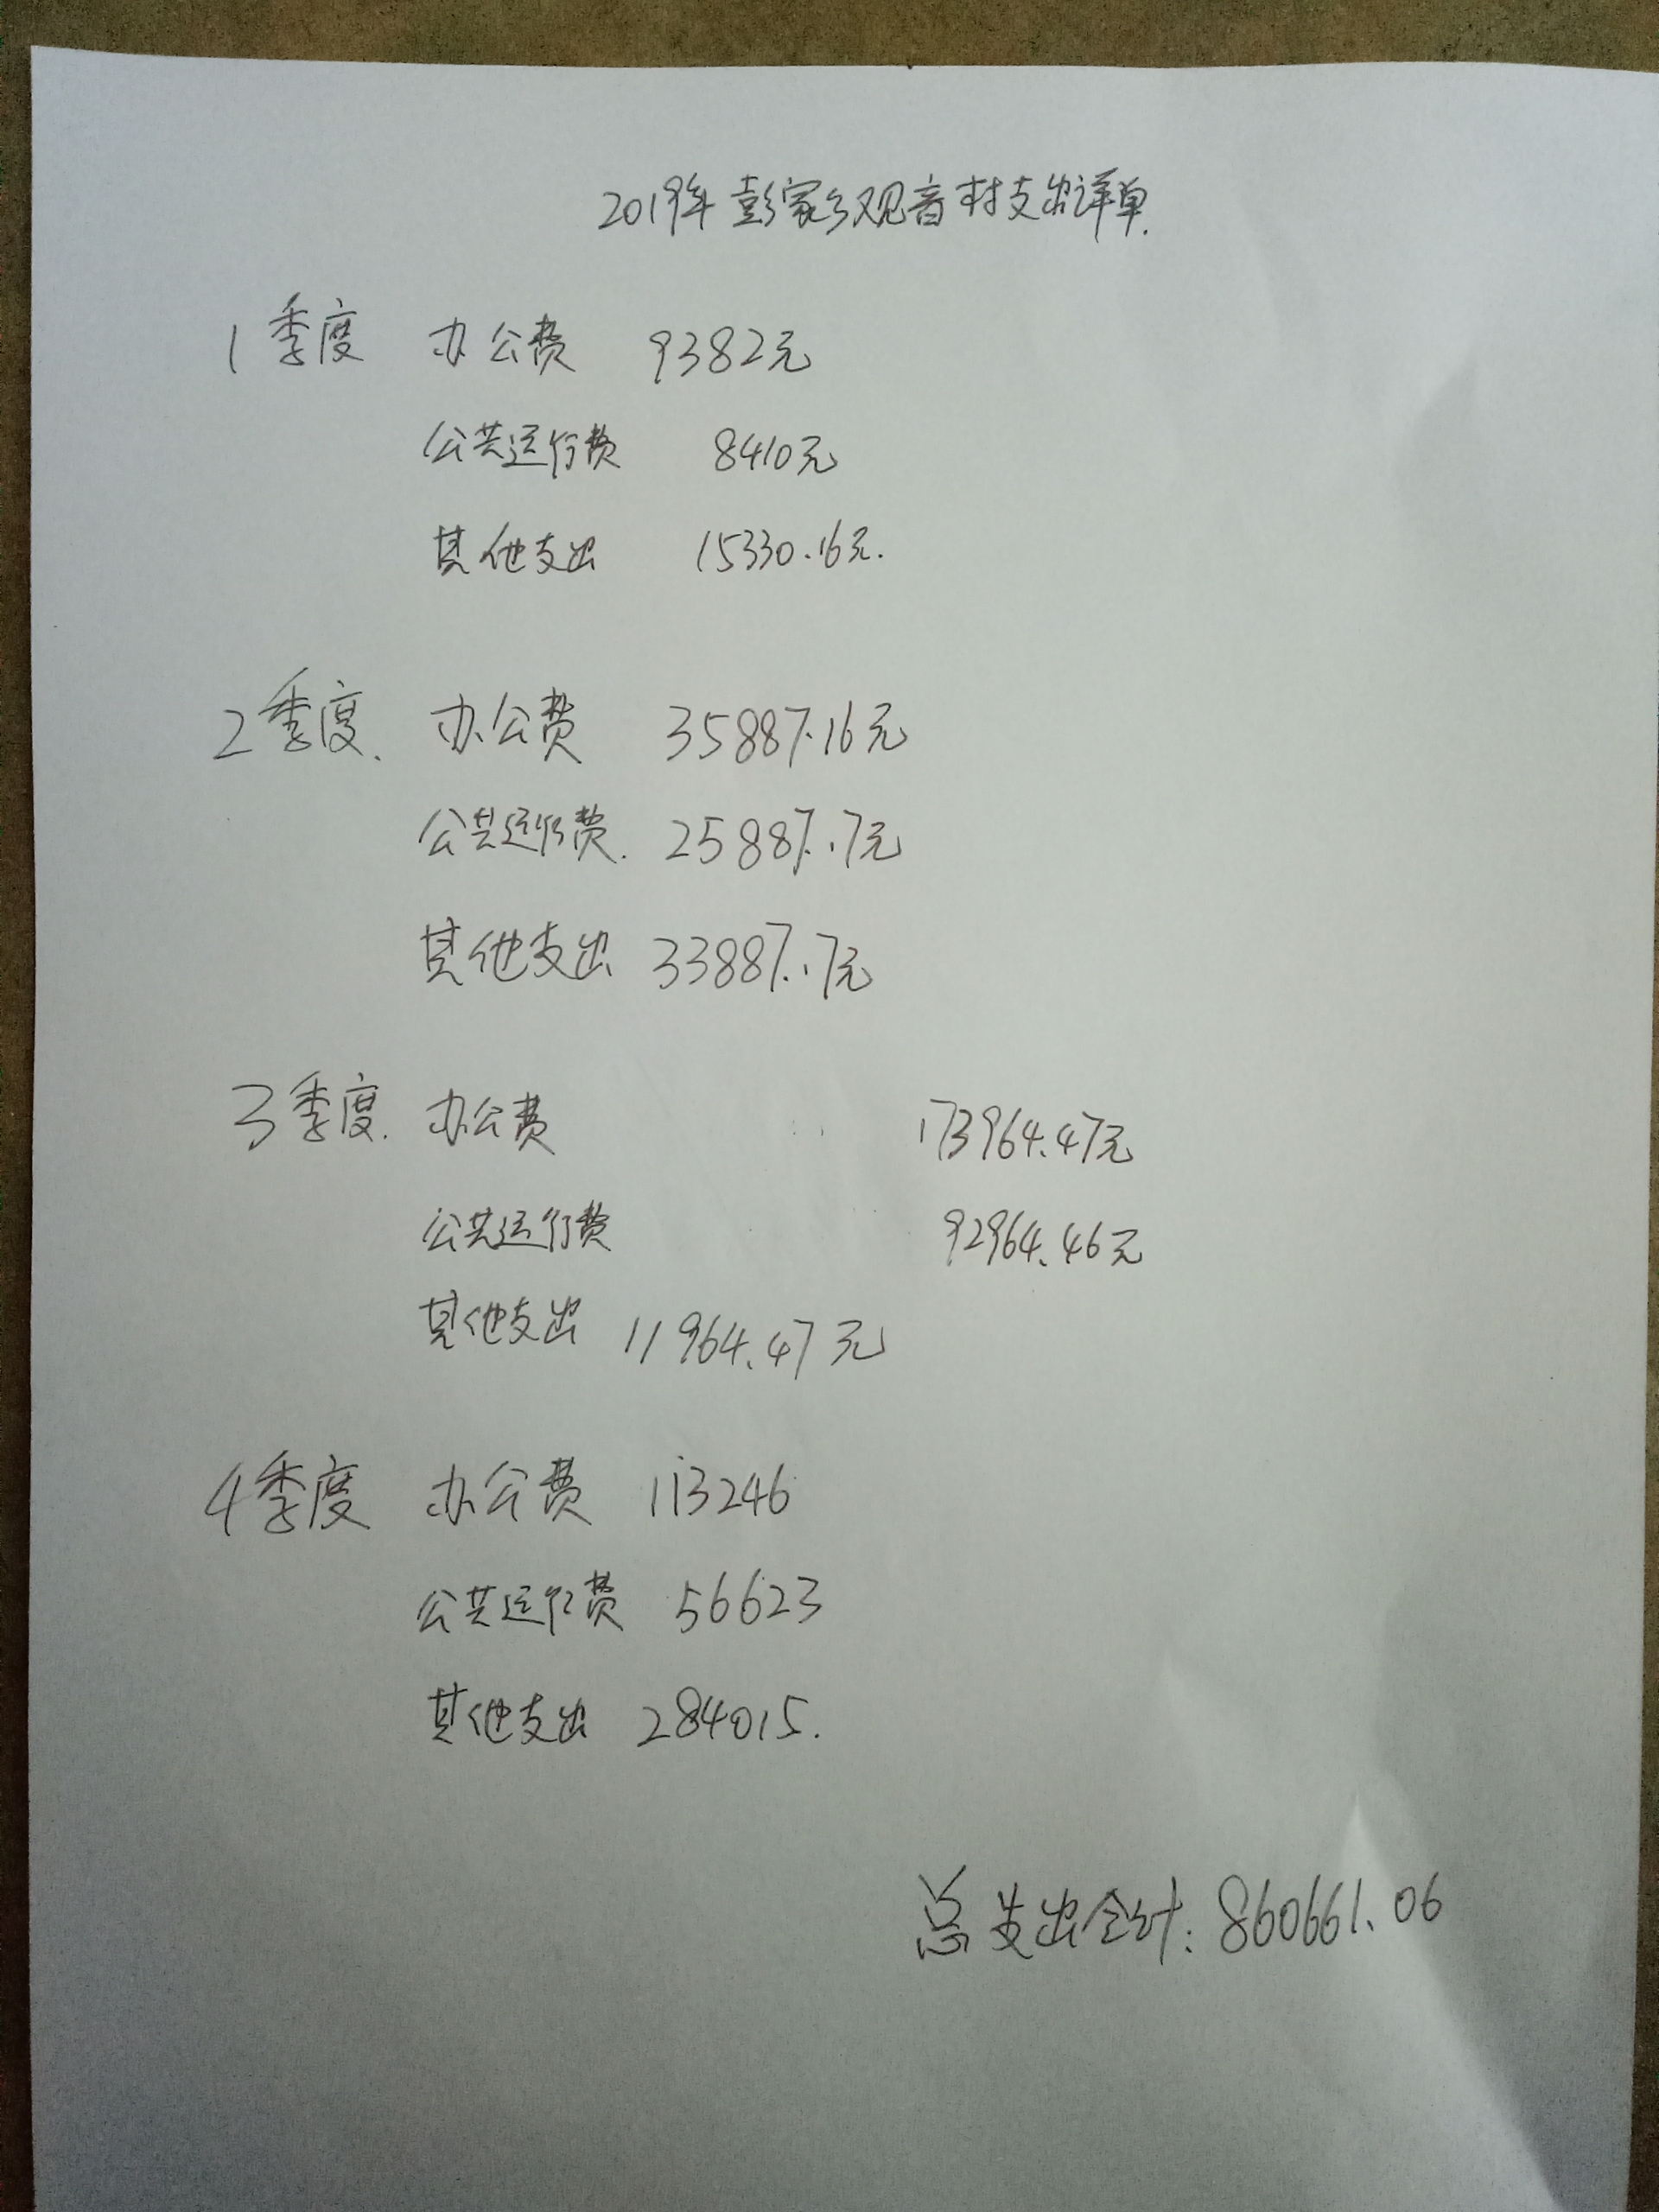 2019年彭家乡观音村支出详单.
1季度 办公费 9382元
公共运行费 8410元
其他支出 15330.16元.
2季度. 办公费 35887.16元
公共运行费. 25887.17元
其他支出 33887.17元
3季度. 办公费 173964.47元
公共运行费 92964.46元
其他支出 11964.47元
4季度 办公费 113246
公共运行费 56623
其他支出 284015.
总支出合计: 860661.06